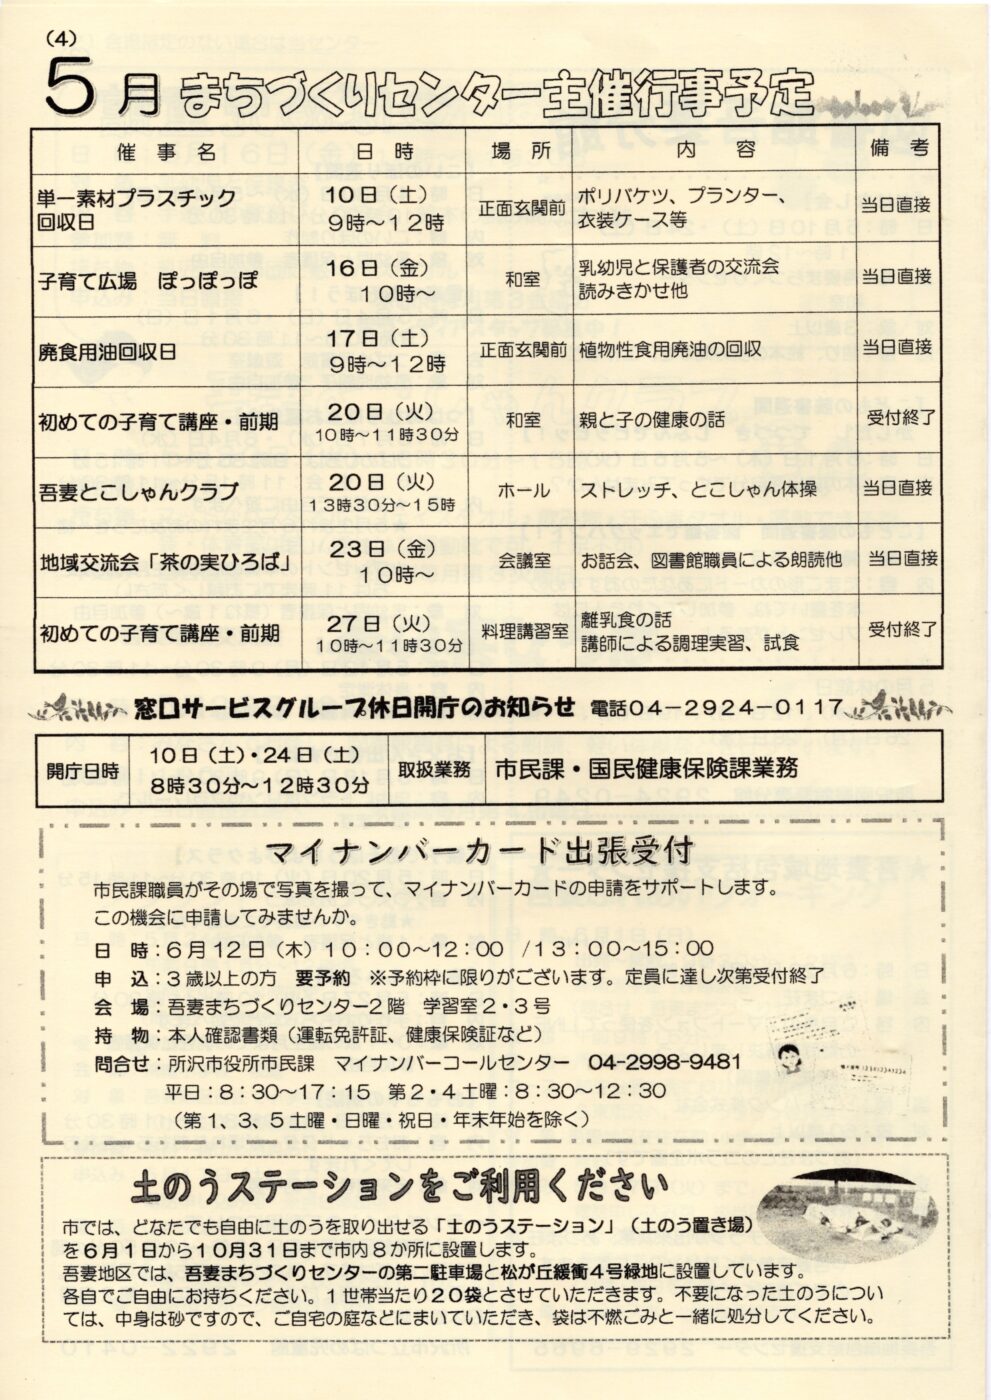 (4)
5月 まちづくりセンター主催行事予定
催事名 日時 場所 内容 備考
単一素材プラスチック
回収日
10日（土）
9時～12時
正面玄関前
ポリバケツ、プランター、
衣装ケース等
当日直接
子育て広場　ぽっぽっぽ
16日（金）
10時～
和室
乳幼児と保護者の交流会
読みきかせ他
当日直接
廃食用油回収日
17日（土）
9時～12時
正面玄関前
植物性食用廃油の回収
当日直接
初めての子育て講座・前期
20日（火）
10時～11時30分
和室
親と子の健康の話
受付終了
吾妻とこしゃんクラブ
20日（火）
13時30分～15時
ホール
ストレッチ、とこしゃん体操
当日直接
地域交流会「茶の実ひろば」
23日（金）
10時～
会議室
お話会、図書館職員による朗読他
当日直接
初めての子育て講座・前期
27日（火）
10時～11時30分
料理講習室
離乳食の話
講師による調理実習、試食
受付終了
窓口サービスグループ休日開庁のお知らせ　電話04－2924－0117
開庁日時
10日（土）・24日（土）
8時30分～12時30分
取扱業務
市民課・国民健康保険課業務
マイナンバーカード出張受付
市民課職員がその場で写真を撮って、マイナンバーカードの申請をサポートします。
この機会に申請してみませんか。
日　時：6月12日（木）10：00～12：00 /13：00～15：00
申　込：3歳以上の方　要予約　※予約枠に限りがございます。定員に達し次第受付終了
会　場：吾妻まちづくりセンター2階　学習室2・3号
持　物：本人確認書類（運転免許証、健康保険証など）
問合せ：所沢市役所市民課　マイナンバーコールセンター　04-2998-9481
平日：8：30～17：15　第2・4土曜：8：30～12：30
（第1、3、5土曜・日曜・祝日・年末年始を除く）
土のうステーションをご利用ください
市では、どなたでも自由に土のうを取り出せる「土のうステーション」（土のう置き場）
を6月1日から10月31日まで市内8か所に設置します。
吾妻地区では、吾妻まちづくりセンターの第二駐車場と松が丘緩衝4号緑地に設置しています。
各自でご自由にお持ちください。1世帯当たり20袋とさせていただきます。不要になった土のうについ
ては、中身は砂ですので、ご自宅の庭などにまいていただき、袋は不燃ごみと一緒に処分してください。